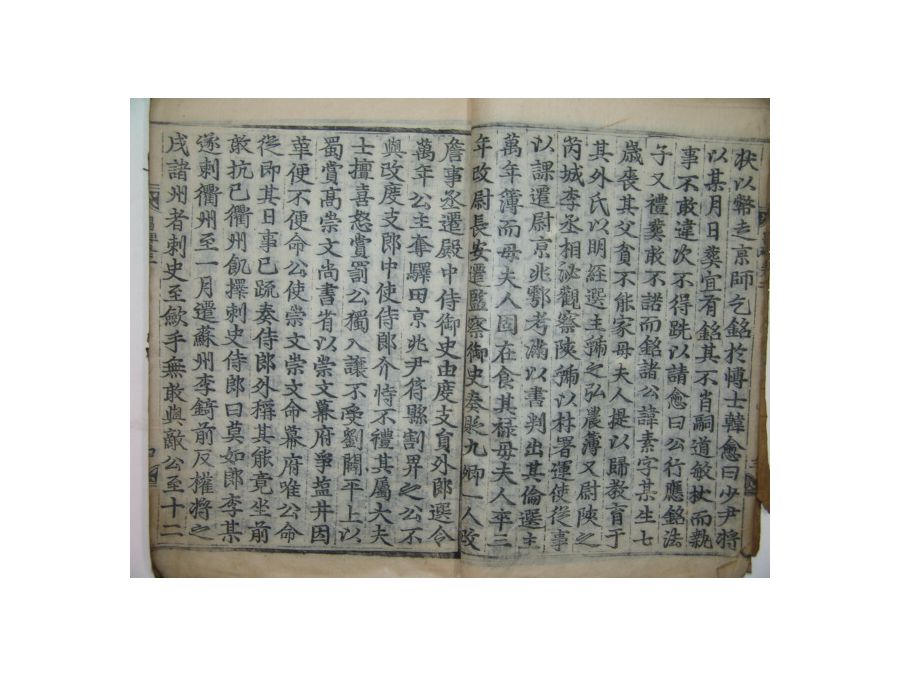 狀以幣走京師乞銘於博士韓愈曰少尹將
以某月日葬宜有銘其不肖嗣道敏杖而執
事不敢違次不得跣以請愈曰公行應銘法
子又禮葬敢不諾而銘諸公諱素字某生七
歲喪其父貧不能家母夫人提以歸教育于
其外氏以明經選主虢之弘農薄又尉陝之
芮城李丞相泌觀察陝虢以材署運使從事
以課遷尉京兆鄠考滿以書判出其倫選主
萬年薄而母夫人固在食其祿母夫人卒三
年改尉長安遷監察御史奏貶九卿一人改
詹事丞遷殿中侍御史由度支員外郎選令
萬年公主奪驛田京兆尹符縣割畀之公不
與改度支郎中使侍郎介恃不禮其屬大夫
士擅喜怒賞罰公獨入讓不受劉闢平上以
蜀賞高崇文尚書省以崇文幕府爭塩井因
革便不便命公使崇文崇文命幕府唯公命
從即其日事已疏奏侍郎外稱其能竟坐前
敢抗已衢州飢擇刺史侍郎曰莫如郎李某
遂刺衢州至一月遷蘇州李錡前反權將之
戌諸州者刺史至斂手無敢與敵公至十二